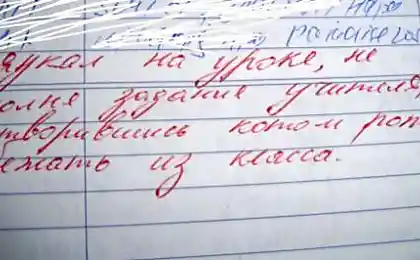 аукал на уроке, не
олня задание учителя,
творившись котом pom
ежать из класса.